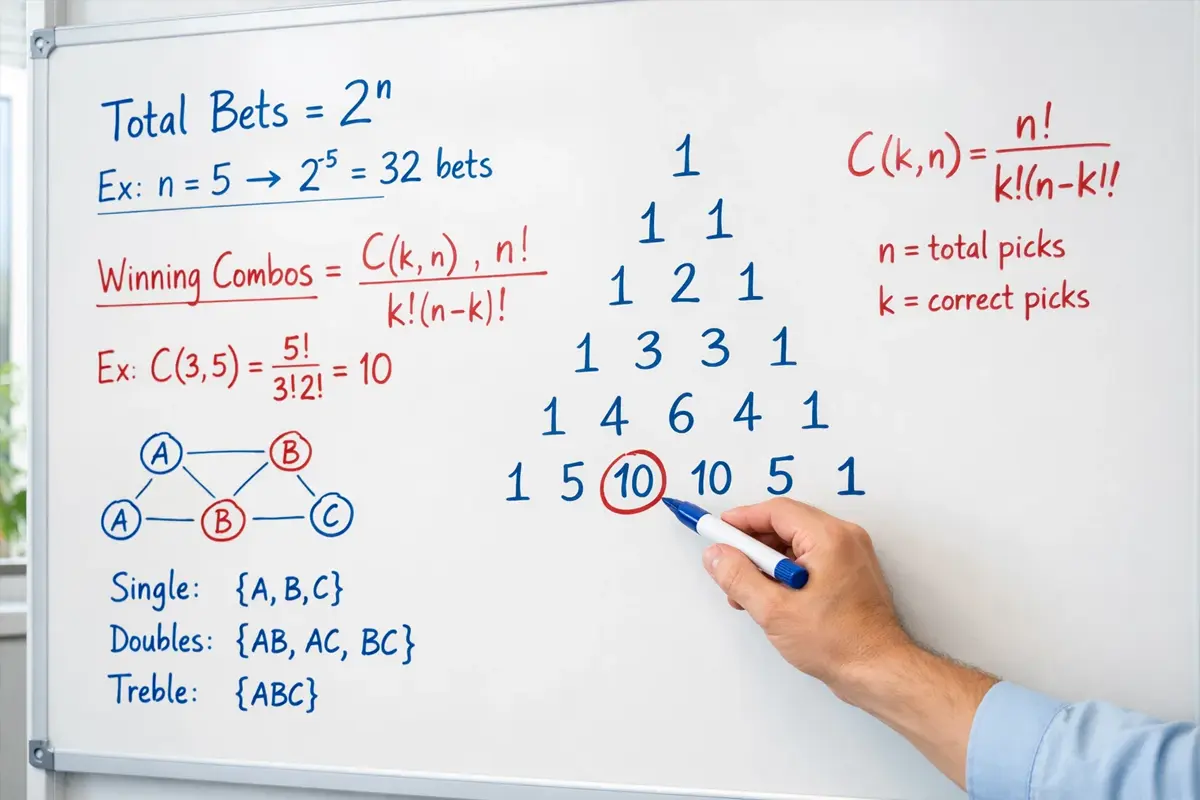 Total Bets = 2ⁿ
Ex: n = 5 → 2⁻⁵ = 32 bets
Winning Combos = C(k,n) , n! / k!(n-k)!
Ex: C(3,5) = 5! / 3!2! = 10
A B
A B C
Single: {A, B,C}
Doubles: {AB, AC, BC}
Treble: {ABC}
1
1 1
1 2 1
1 3 3 1
1 4 6 4 1
1 5 10 10 5 1
C(k,n) = n! / k!(n-k!!
n = total picks
k = correct picks